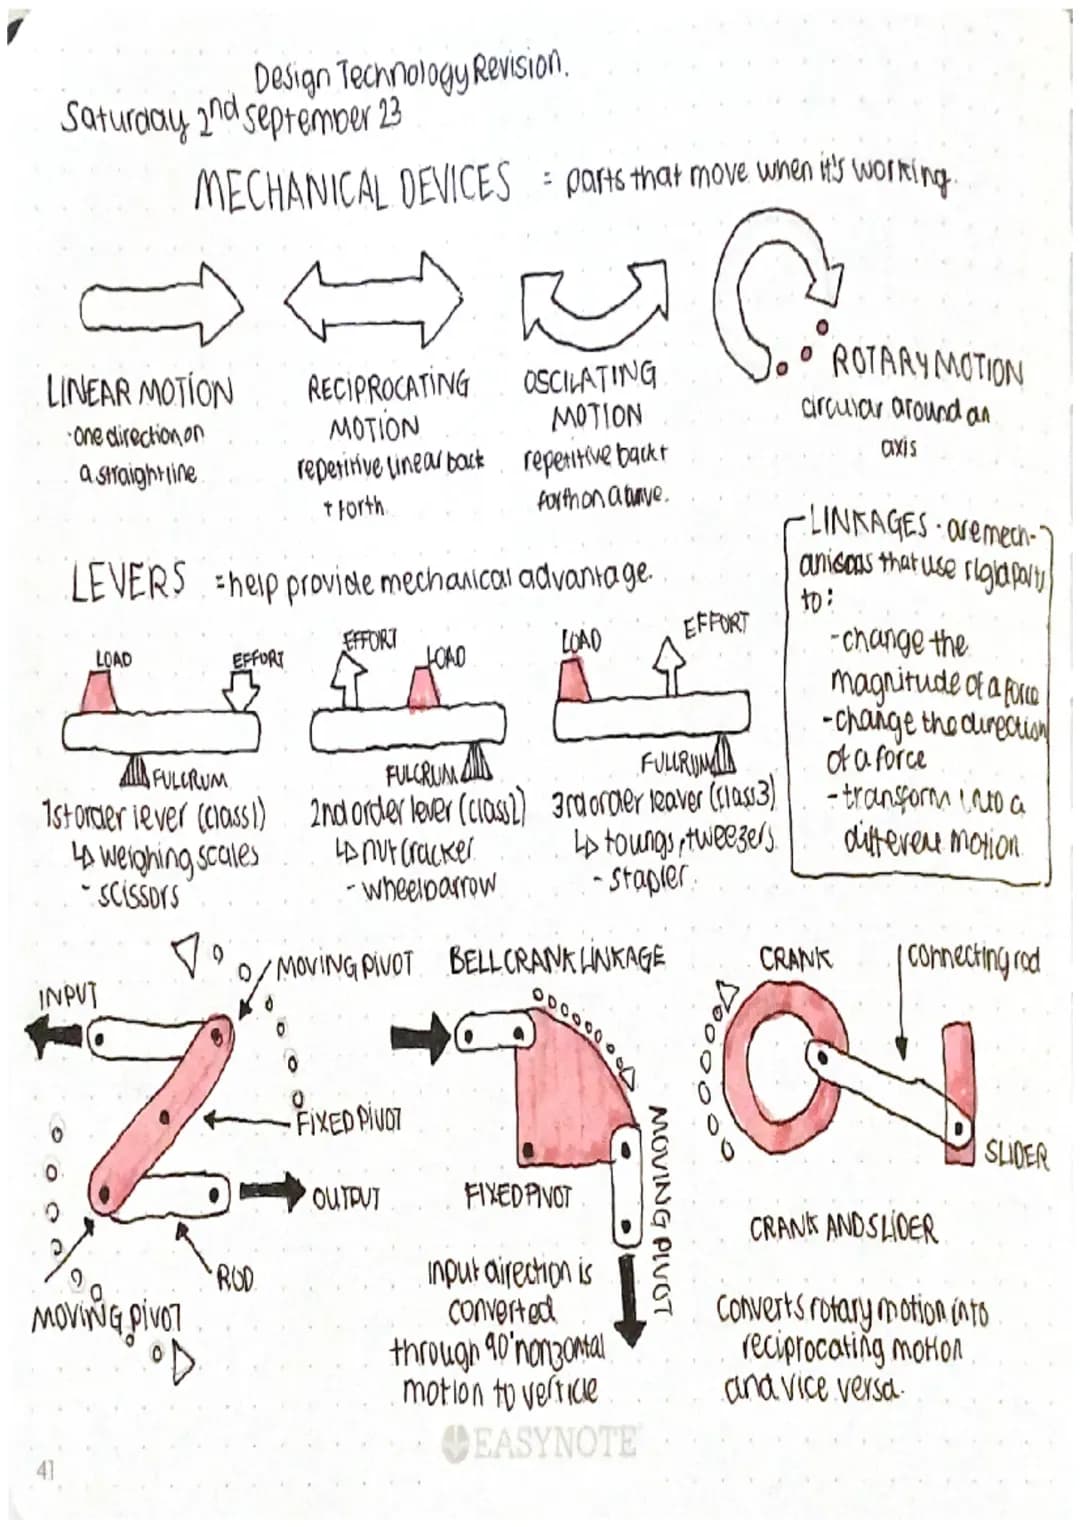 Design Technology Revision.
Saturday 2nd september 23
MECHANICAL DEVICES = parts that move when it's working.
LINEAR MOTION
·one direction on
a straight line
RECIPROCATING
MOTION
repetitive linear back
+ forth
OSCILATING
MOTION
repetitive back +
forth on a curve.
ROTARY MOTION
circular around an
axis
LINKAGES · are mech-
anisms that use rigid parts
to:
-change the
magnitude of a force
-change the direction
of a force
-transform into a
different motion
LEVERS =help provide mechanical advantage.
LOAD
EFFORT
FULCRUM
1st order lever (class1)
↳ weighing scales
- scissors
EFFORT
LOAD
FULCRUM
2nd order lever (class2)
↳ nut cracker
- wheelbarrow
LOAD
EFFORT
FULCRUM
3rd order leaver (class3)
↳ toungs, tweezers
- stapler.
INPUT
MOVING PIVOT
FIXED PIVOT
OUTPUT
ROD
MOVING PIVOT
BELL CRANK LINKAGE
FIXED PIVOT
MOVING PIVOT
Input direction is
converted
through 90° horizontal
motion to verticle
CRANK
connecting rod
SLIDER
CRANK AND SLIDER
Converts rotary motion into
reciprocating motion
and vice versa.
EASYNOTE
41